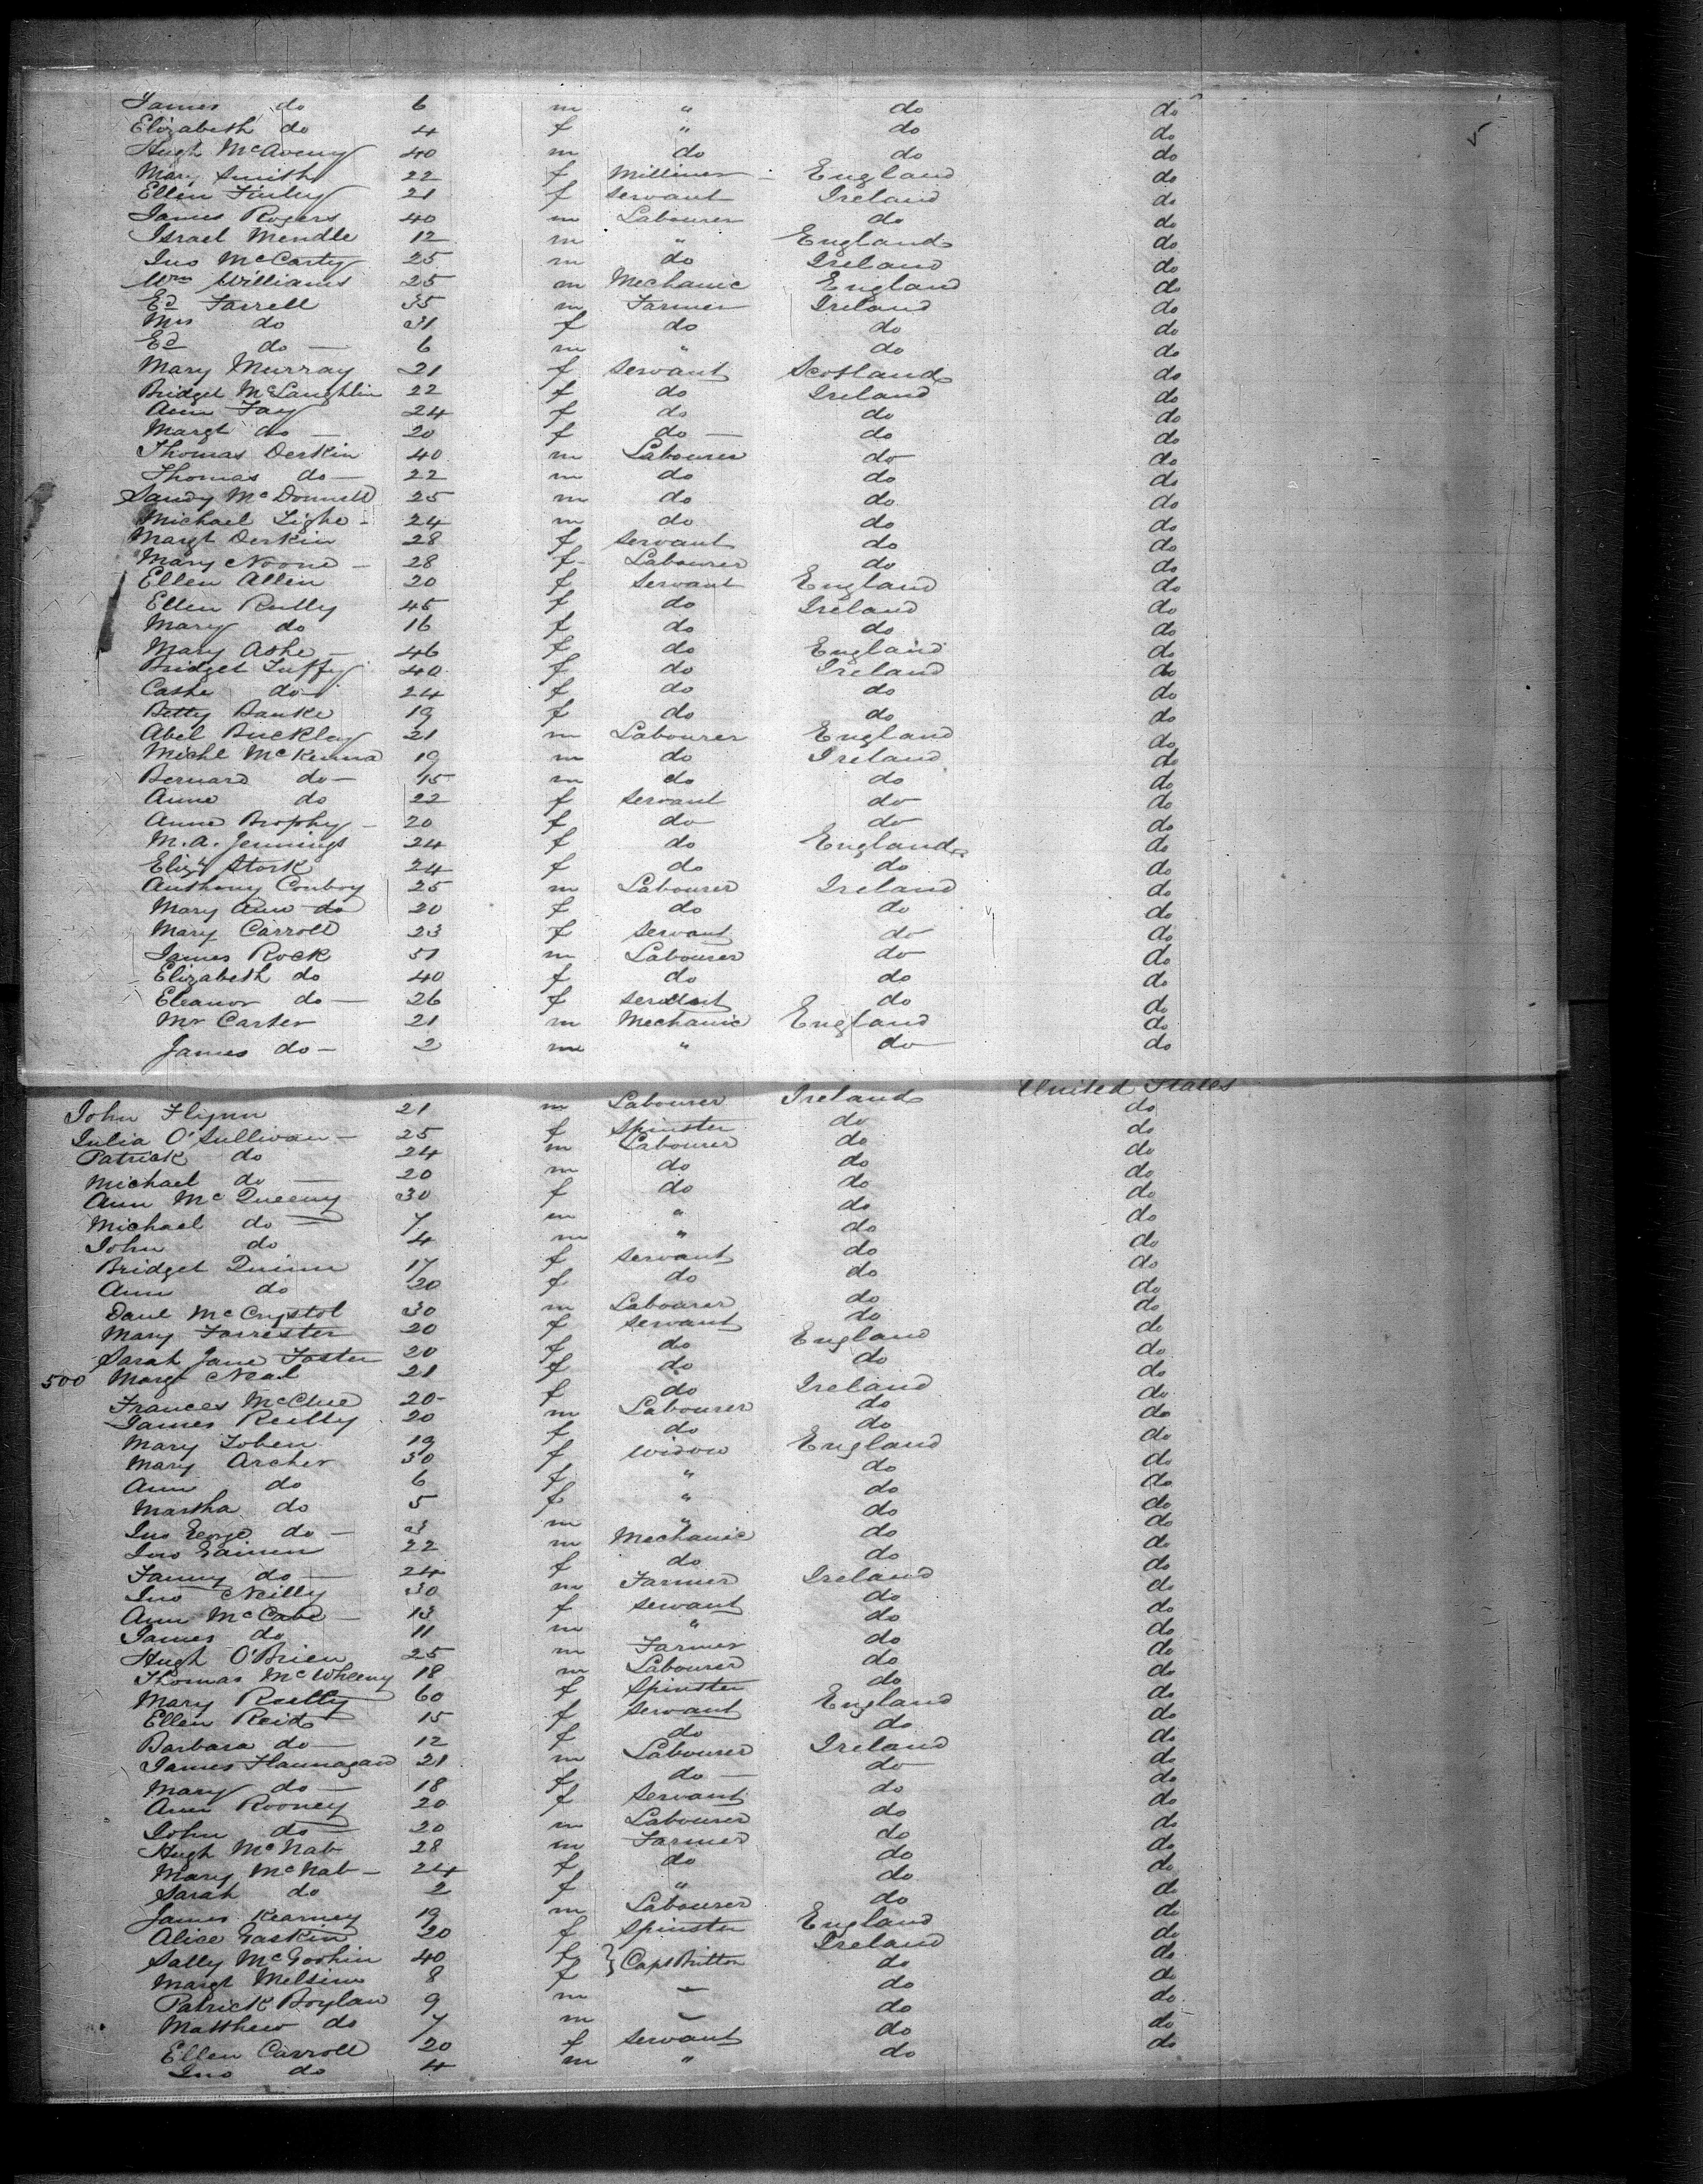 James do 6 m " do do
Elizabeth do 4 f " do do
Hugh McAveny 40 m do do do
Mary Smith 22 f Milliner England do
Ellen Finley 21 f Servant Ireland do
James Rogers 40 m Labourer do do
Israel Mendle 12 m " England do
Jno McCarty 25 m do Ireland do
Wm Williams 25 m Mechanic England do
Ed Farrell 35 m Farmer Ireland do
Mrs do 31 f do do do
Ed do — 6 m " do do
Mary Murray 21 f Servant Scotland do
Bridget McLaughlin 22 f do Ireland do
Ann Fay 24 f do do do
Margt do — 20 f do — do do
Thomas Derkin 40 m Labourer do do
Thomas do — 22 m do do do
Sandy McDonnell 25 m do do do
Michael Tighe - 24 m do do do
Margt Derkin 28 f Servant do do
Mary Noone - 28 f Labourer do do
Ellen Allen 20 f Servant England do
Ellen Reilly 45 f do Ireland do
Mary do 16 f do do do
Mary Ashe - 46 f do England do
Bridget Tuffy 40 f do Ireland do
Cathe do - 24 f do do do
Betty Banke 19 f do do do
Abel Buckley 21 m Labourer England do
Michl McKenna 19 m do Ireland do
Bernard do - 15 m do do do
Anne do 22 f Servant do do
Anne Brophy - 20 f do do do
M. A. Jennings 24 f do England do
Eliz Stork 24 f do do do
Anthony Conboy 25 m Labourer Ireland do
Mary Ann do 20 f do do do
Mary Carroll 23 f Servant do do
James Rock 51 m Labourer do do
Elizabeth do 40 f do do do
Eleanor do — 26 f Servant do do
Mr Carter 21 m Mechanic England do
James do - 2 m " do do
John Flynn 21 m Labourer Ireland United States
Julia O'Sullivan - 25 f Spinster do do
Patrick do 24 m Labourer do do
Michael do — 20 m do do do
Ann McQueeny 30 f do do do
Michael do — 7 m " do do
John do 4 m " do do
Bridget Quinn 17 f Servant do do
Ann do 20 f do do do
Danl McCrystol 30 m Labourer do do
Mary Forrester 20 f Servant do do
Sarah Jane Foster 20 f do England do
500 Margt Neal 21 f do do do
Frances McClue 20 f do Ireland do
James Reilly 20 m Labourer do do
Mary Toben 19 f do do do
Mary Archer 30 f Widow England do
Ann do 6 f " do do
Martha do 5 f " do do
Jno George do - 3 m " do do
Jno 22 m Mechanic do do
Fanny do — 24 f do do do
Jno Neilly 30 m Farmer Ireland do
Ann McCabe - 13 f Servant do do
James do 11 m " do do
Hugh O'Brien 25 m Farmer do do
Thomas McWheeny 18 m Labourer do do
Mary Reilly 60 f Spinster do do
Ellen Reid 15 f Servant England do
Barbara do — 12 f do do do
James Hannagan 21 m Labourer Ireland do
Mary do — 18 f do — do do
Ann Rooney 20 f Servant do do
John do — 20 m Labourer do do
Hugh McNab 28 m Farmer do do
Mary McNab - 24 f do do do
Sarah do 2 f " do do
James Kearney 19 m Labourer do do
Alice Gaskin 20 f Spinster England do
Sally McGoohin 40 f } Capt Britton Ireland do
Margt 8 f do do
Patrick Boylan 9 m — do do
Matthew do 7 m — do do
Ellen Carroll 20 f Servant do do
Jno do 4 m " do do